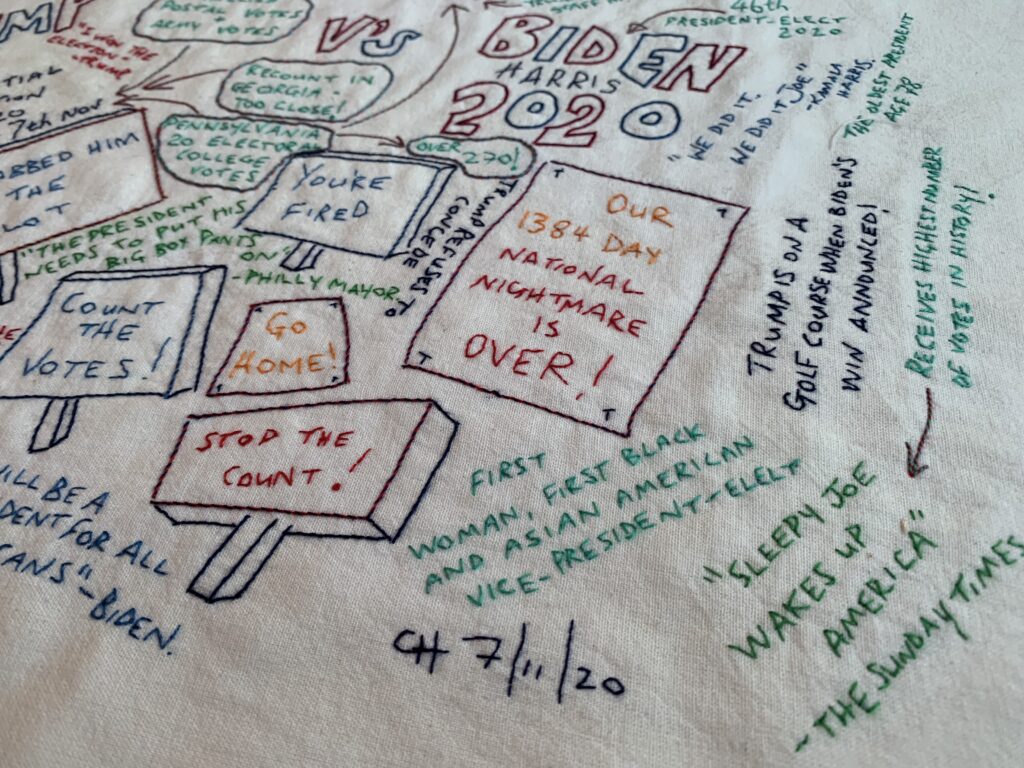 POSTAL VOTES
ARMY VOTES
"I WON THE
ELECTION"
-TRUMP
V'S
BIDEN
HARRIS
2020
46th
PRESIDENT-ELECT
2020
7th NOV
RECOUNT IN
GEORGIA-
TOO CLOSE!
PENNSYLVANIA
20 ELECTORAL
COLLEGE
VOTES
OVER
270!
"WE DID IT.
WE DID IT JOE"
-KAMALA
HARRIS.
THE OLDEST PRESIDENT
AGE 78
HIM
THE
YOU'RE
FIRED
TRUMP REFUSES TO
CONCEDE
"THE PRESIDENT
NEEDS TO PUT HIS
BIG BOY PANTS
ON"
-PHILLY MAYOR
T T
OUR
1384 DAY
NATIONAL
NIGHTMARE
IS
OVER!
T T
TRUMP IS ON A
GOLF COURSE WHEN BIDENS
WIN ANNOUNCED!
RECEIVES HIGHEST NUMBER
OF VOTES IN HISTORY!
COUNT
THE
VOTES!
GO
HOME!
STOP THE
COUNT!
FIRST
WOMAN, FIRST BLACK
AND ASIAN AMERICAN
VICE-PRESIDENT-ELECT
"SLEEPY JOE
WAKES UP
AMERICA"
~THE SUNDAY TIMES
BE A
FOR ALL
-BIDEN.
CH 7/11/20